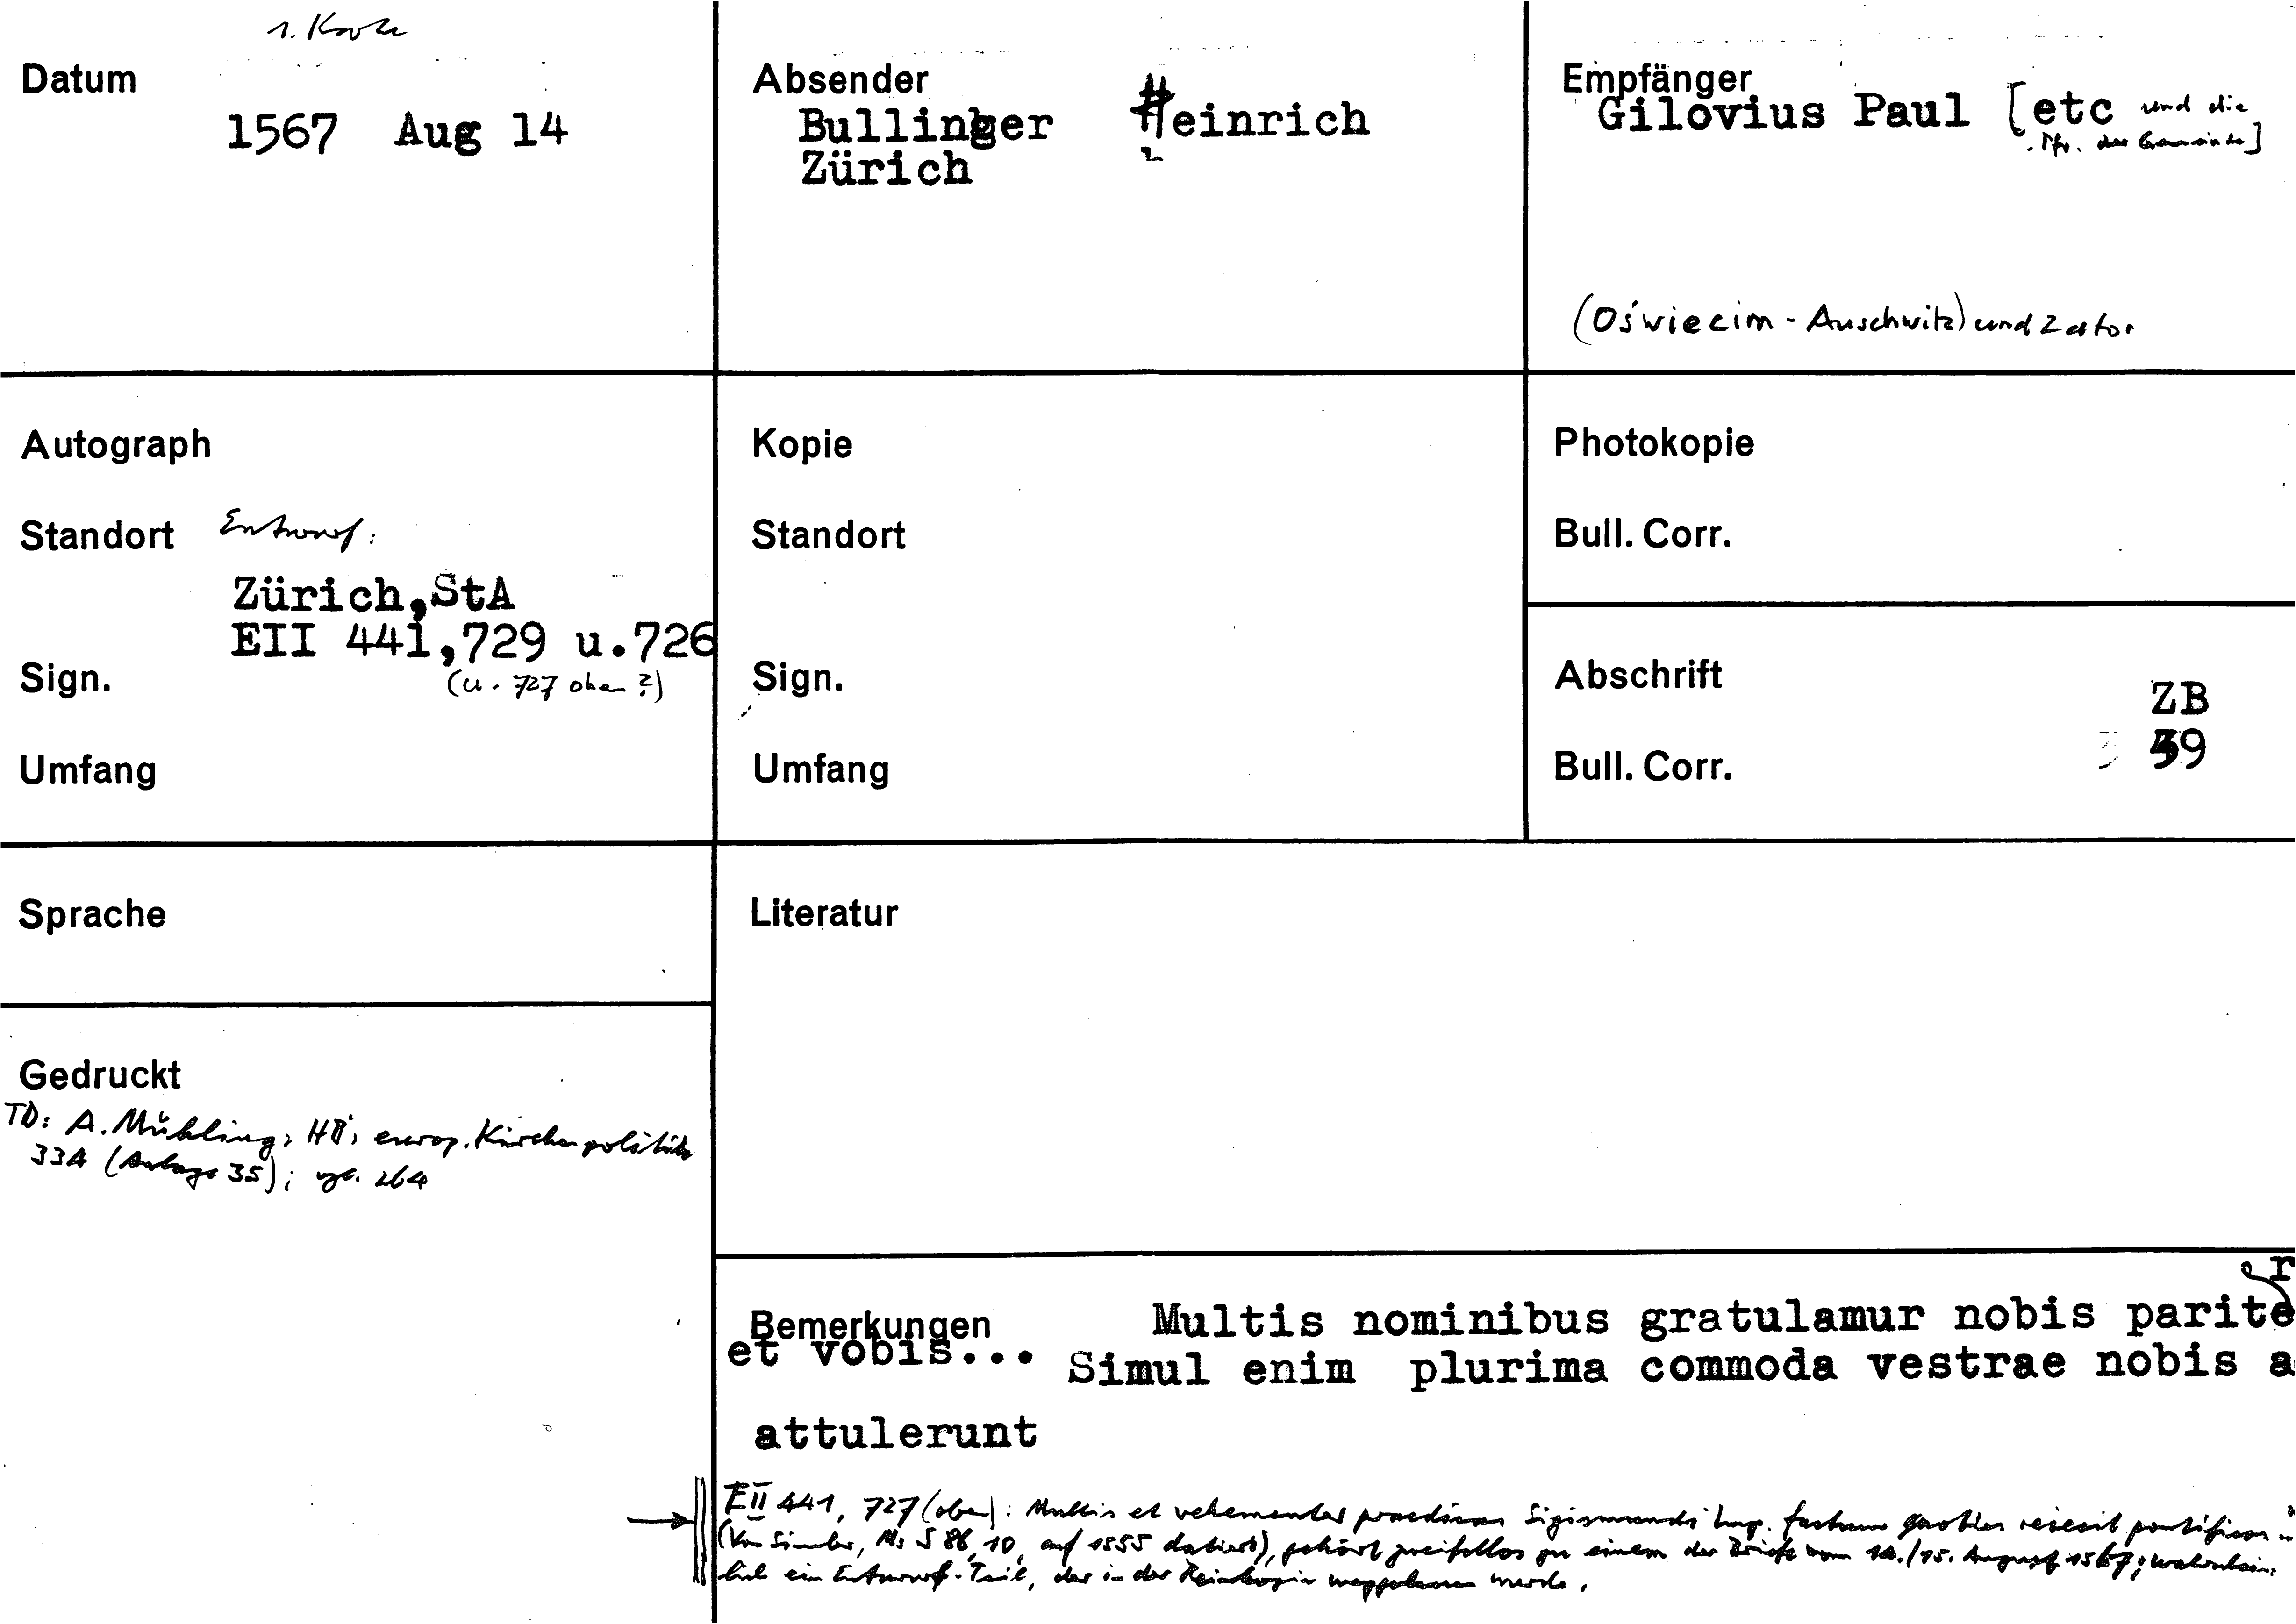 1. Karte
Datum
1567 Aug 14
Absender
Bullinger Heinrich
Zürich
Empfänger
Gilovius Paul [etc und die
Pfr. der Gemeinde]
(Oświecim - Auschwitz) und Zator
Autograph
Standort Entwurf:
Zürich, StA
EII 441,729 u.726
Sign. (u. 727 oben?)
Umfang
Kopie
Standort
Sign.
Umfang
Photokopie
Bull. Corr.
Abschrift
ZB
59
Bull. Corr.
Sprache
Literatur
Gedruckt
TD: A. Mühling, HB's europ. Kirchenpolitik
334 (Anlage 35); vgl. 264
Bemerkungen Multis nominibus gratulamur nobis pariter
et vobis... Simul enim plurima commoda vestrae nobis a
attulerunt
EII 441, 727 (oben): Multis et vehementer Sigismundi Imp. factum reiecit
(Von Simler, Ms S 86, 10, auf 1555 datiert), gehört zweifellos zu einem der Briefe vom 14./15. August 1567; wahrschein-
lich ein Entwurf-Teil, der in der Reinkopie weggelassen wurde.